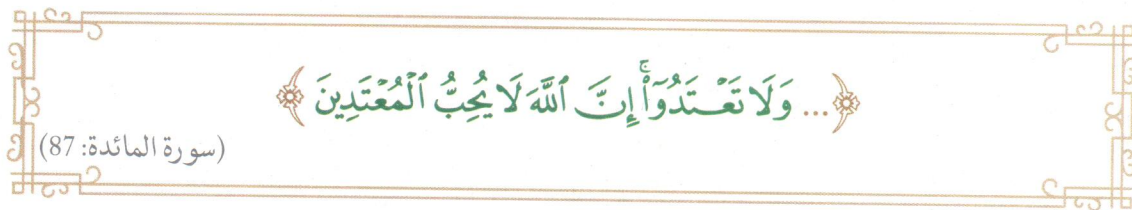 ﴿... وَلَا تَعْتَدُوٓا۟ۚ إِنَّ ٱللَّهَ لَا يُحِبُّ ٱلْمُعْتَدِينَ﴾
(سورة المائدة: 87)